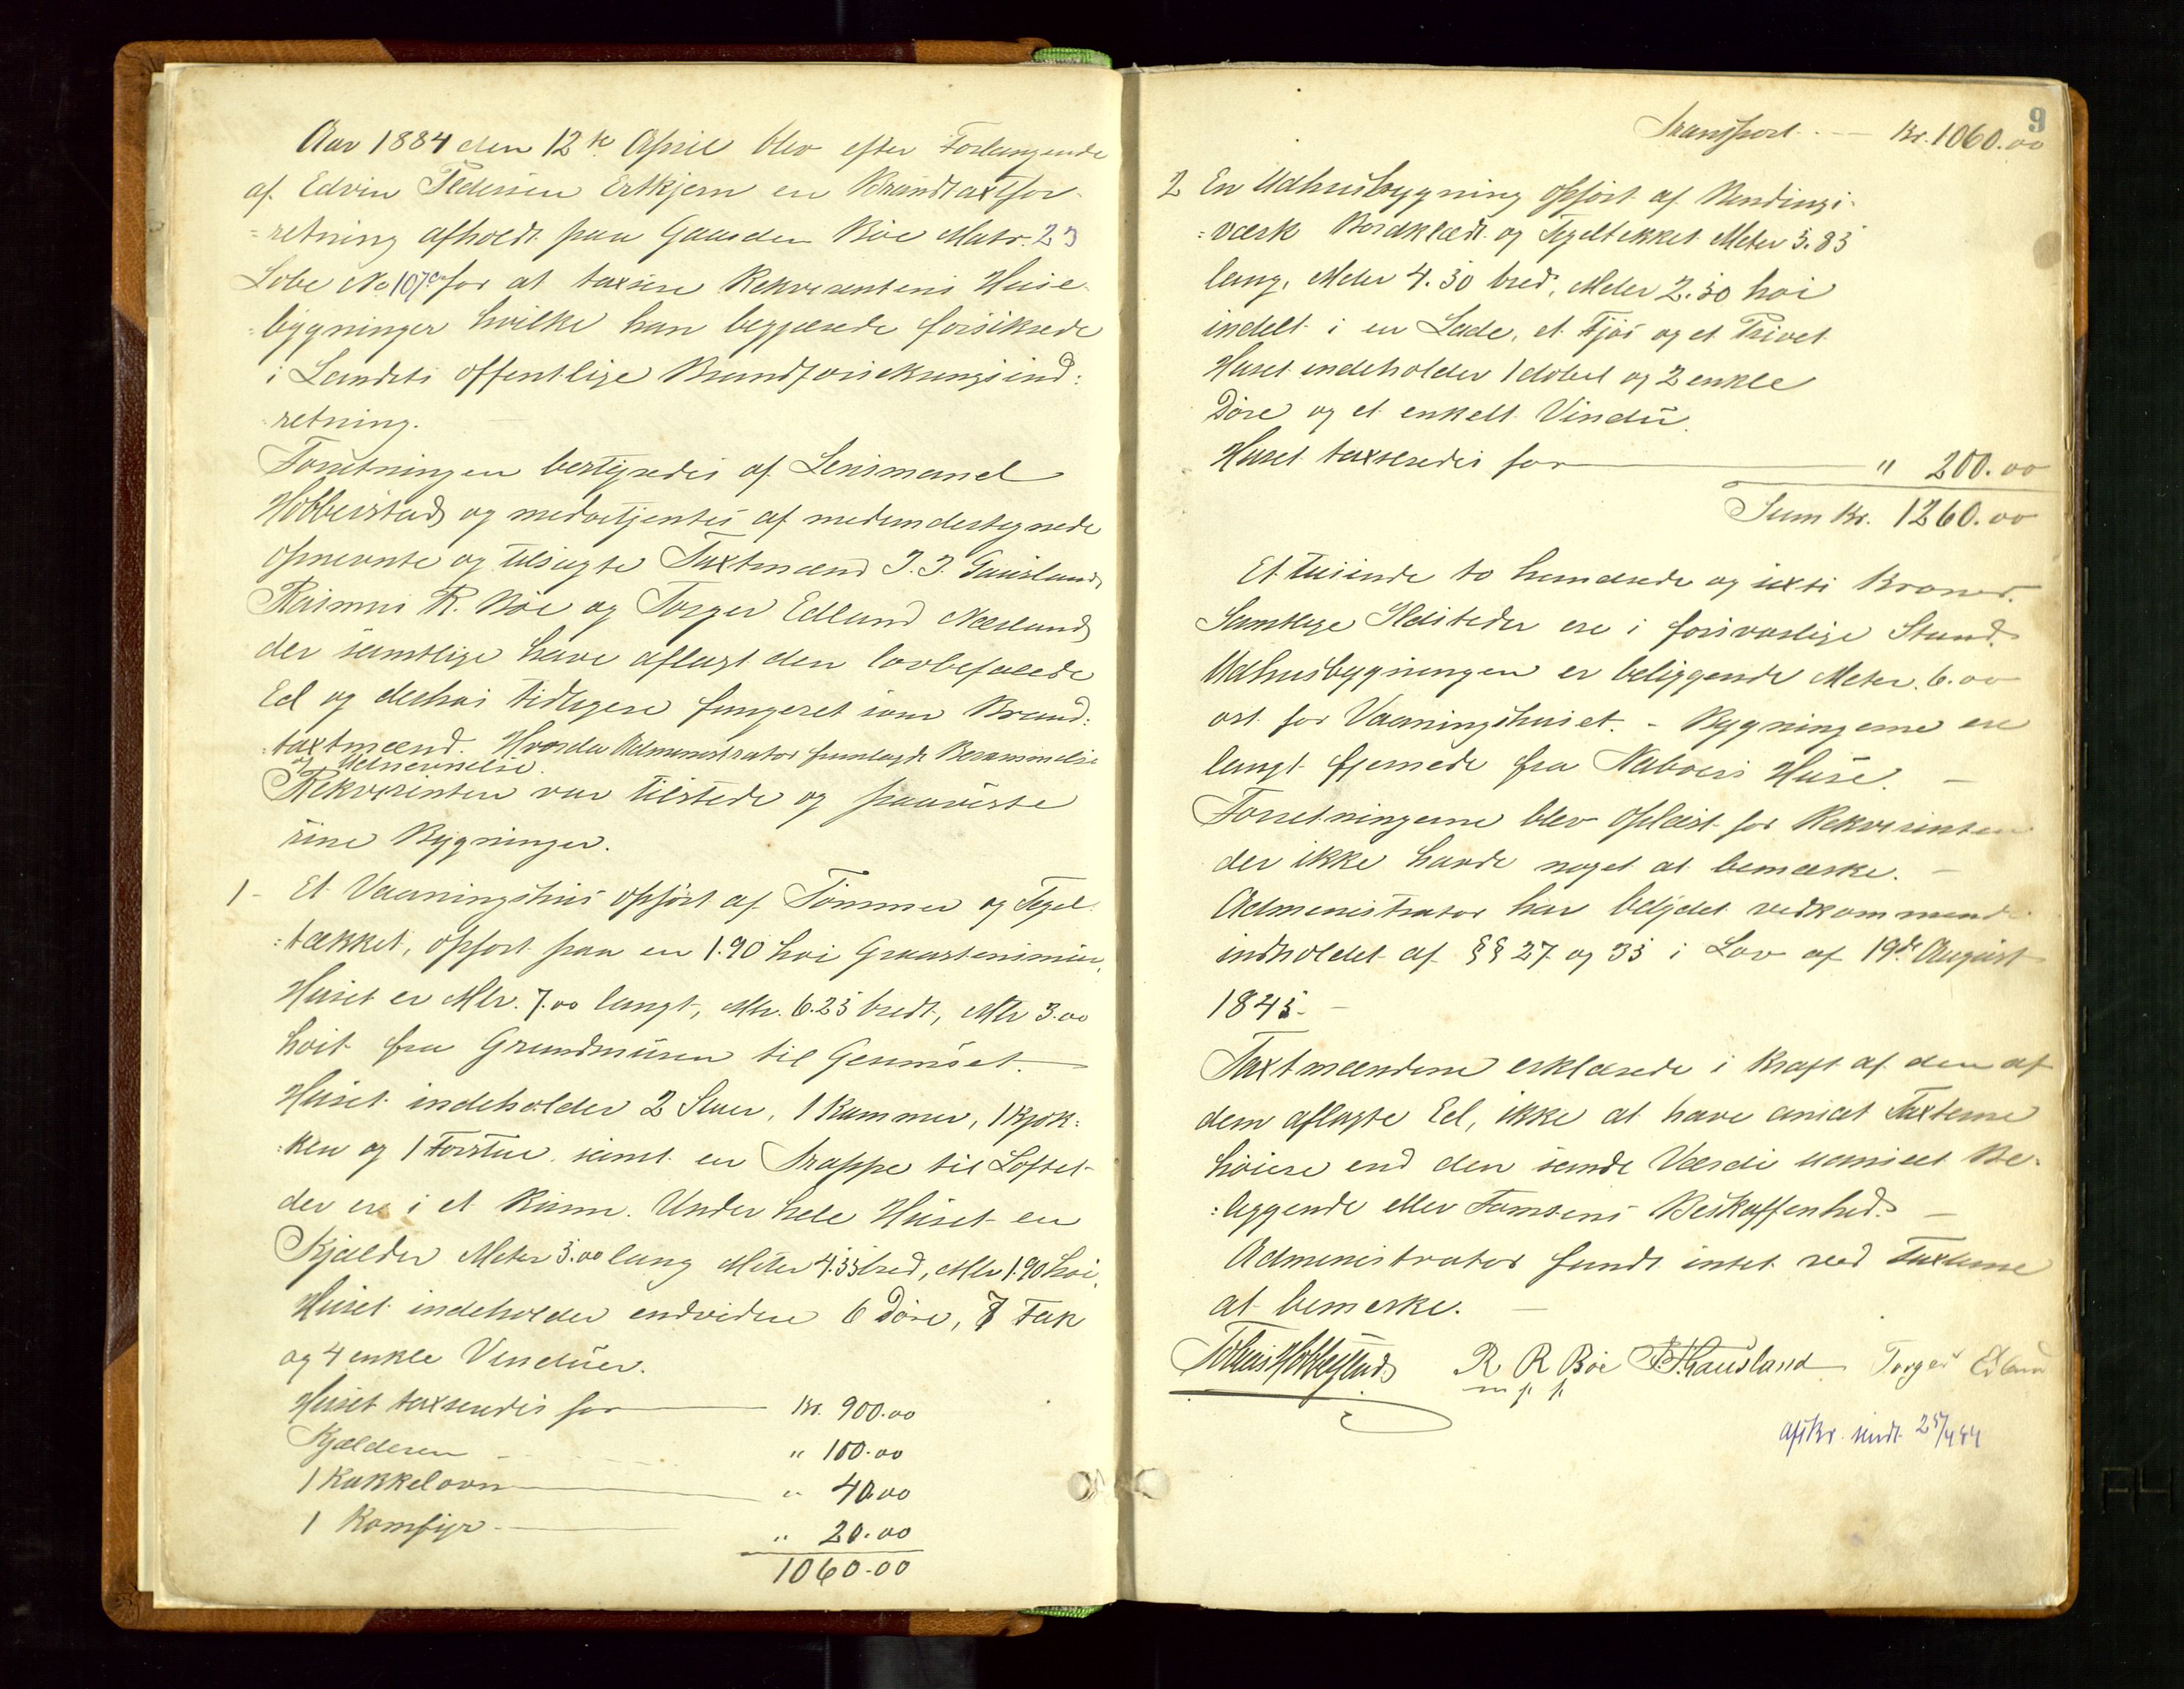 Aar 1884 den 12te April blev efter Forlangende
af Edvin Pedersen Erkjern en Brandtaxtfor-
=retning afholdt paa Gaarden Böe Matr. 23
Löbe No 107a for at taxere Rekvirentens Huse-
=bygninger hvilke han begjærede forsikrede
i Landets offentlige Brandforsikrings ind:
retning.
Forretningen bestyredes af Lensmand
Hobberstad og medbetjentes af medundertegnede
opnævnte og tilsagte Taxtmænd J. J. Gausland
Rasmus R. Böe og Torger Edland Nærland
der samtlige have aflagt den lovbefalede
Ed og deshos tidligere fungeret som Brand:
:taxtmænd. Hvorda Administrator fremlagde Berammelse
og Udnævnelse.
Rekvirenten var tilstede og paaviste
sine Bygninger.
1- Et Vaaningshus opført af Tömmer og Tegel-
:tækket, opført paa en 1.90 höi Graastensmur,
Huset er Mtr. 7.00 langt, Mtr. 6.25 bredt, Mtr 3.00
höit fra Grundmuren til Gesimset.
Huset indeholder 2 Stuer, 1 Kammer, 1 Kjök:
:ken og 1 Forstue samt en Trappe til Loftet
der er i et Rum. Under hele Huset en
Kjælder Meter 5.00 lang Meter 4.55 bred, Mtr 1.90 höi,
Huset indeholder endvidere 6 Döre, 7 Fak
og 4 enkle Vinduer.
Huset taxeredes for Kr. 900.00
Kjælderen " 100.00
1 Kakkelovn " 40.00
1 Komfyr " 20.00
1060.00
9
Transport Kr. 1060.00
2 En Udhusbygning opfört af Bindings-
:værk Bordklædt og Tegeltekket Meter 5.85
lang, Meter 4.50 bred, Meter 2.50 höi
indelt i en Lade, et Fjös og et Privet
Huset indeholder 1 dobel og 2 enkle
Döre og et enkelt Vindu.
Huset taxseredes for " 200.00
Sum Kr. 1260.00
Et tusinde to hundrede og sexti Kroner.
Samtlige Ildsteder ere i forsvarlige Stand.
Udhusbygningen er beliggende Meter 6.00
ost for Vaaningshuset. - Bygningerne ere
langt fjernede fra Naboers Huse. -
Forretningerne blev oplæst for Rekvirenten
der ikke havde noget at bemærke. -
Administrator har betydet vedkommende
indholdet af §§ 27 og 35 i Lov af 19de August
1845.-
Taxtmændene erklærede i Kraft af den af
dem aflagte Ed, ikke at have ansat Taxterne
höiere end den sande Værdi uanseet Be-
:liggende eller Tomtens Beskaffenhed. -
Administrator fandt intet ved Taxterne
at bemerke. -
Tobias Hobberstad R R Böe J. J. Gausland Torger Edland
m f p
afskr. sendt 25/4 84